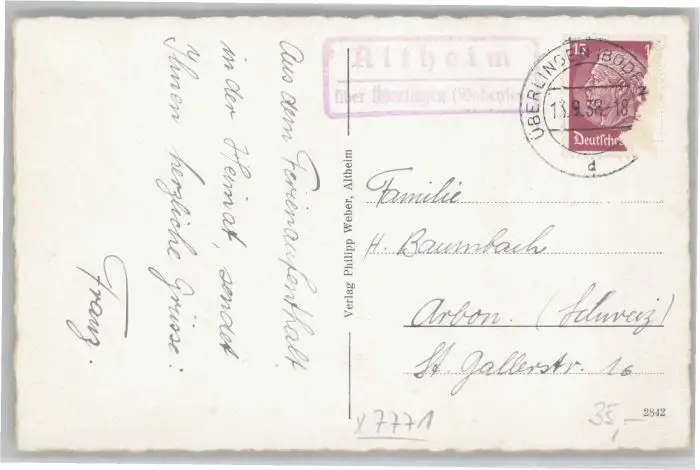 Altheim
über Überlingen (Bodensee)
ÜBERLINGEN (BODEN
13.9.38.-18
d
15
1
Deutsches
Aus dem Ferienaufenthalt
in der Heimat, sendet
Ihnen herzliche Grüsse:
Franz.
Verlag Philipp Weber, Altheim
Familie
H. Baumbach
Arbon. (Schweiz)
St. Gallerstr. 16
x7771
35,—
2842